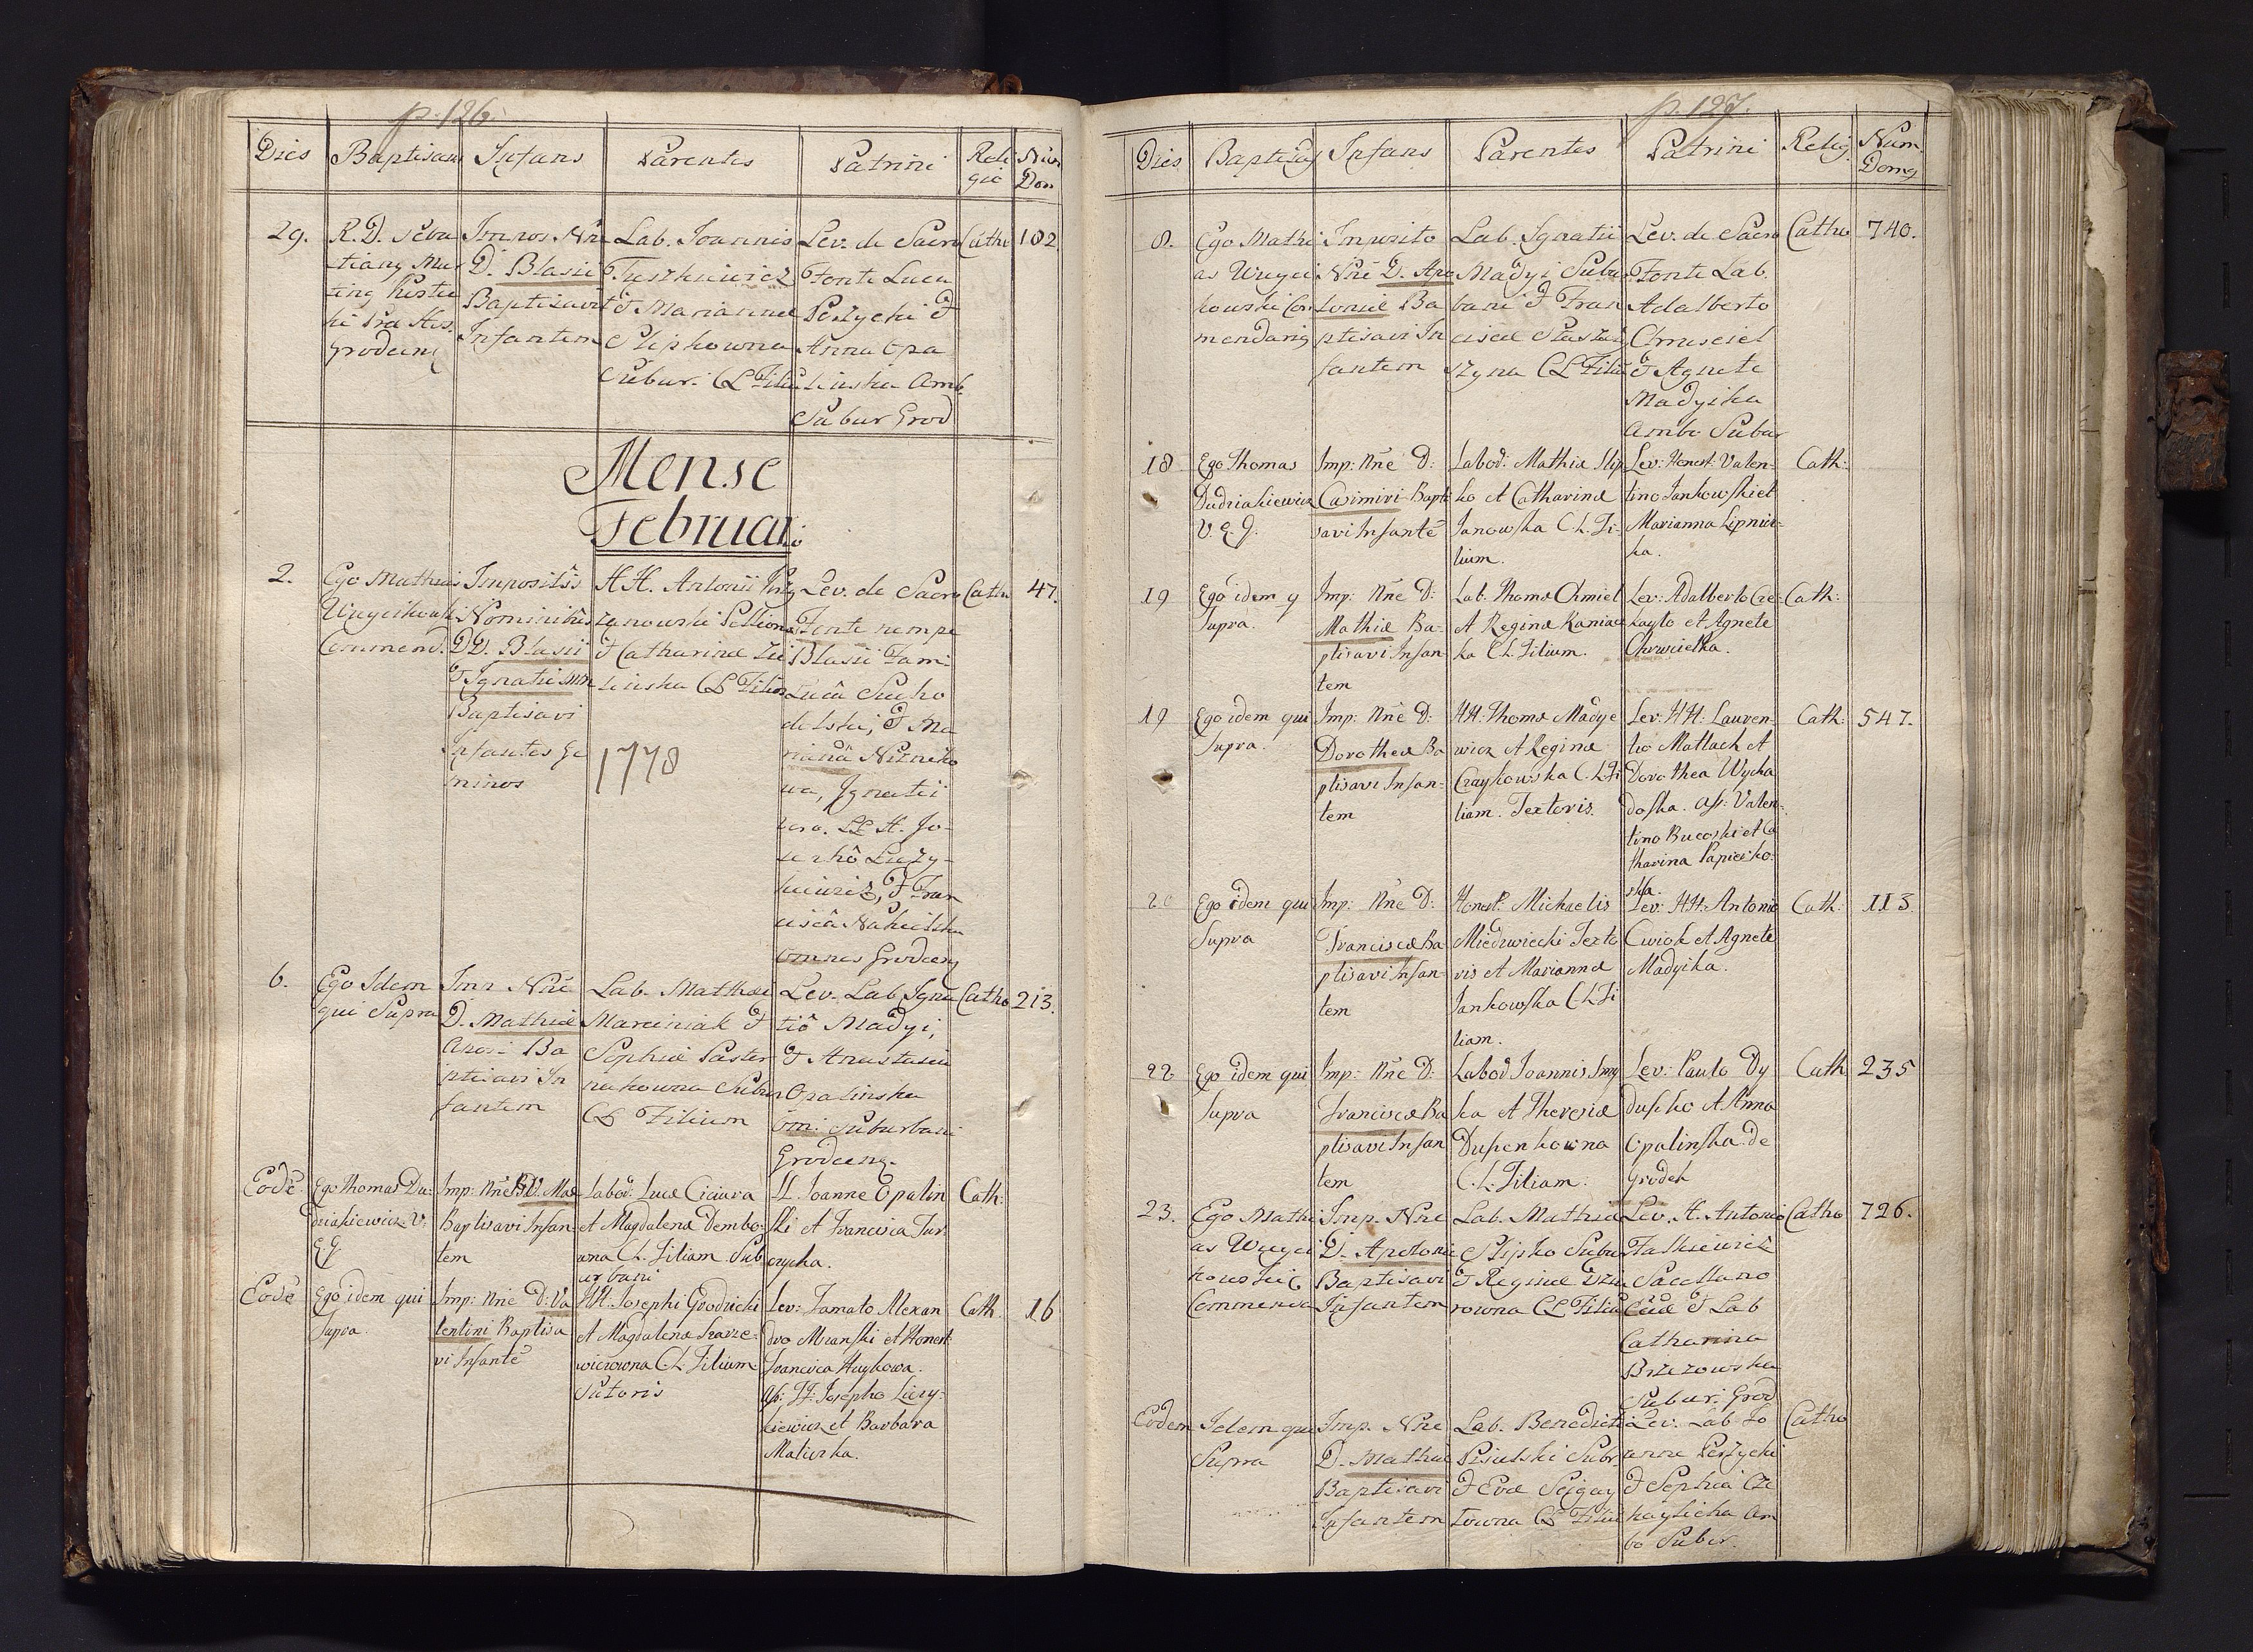 p. 126
Dies Baptisans Infans Parentes Patrini Religio Num Dom
29.
R. D. Seba
stiang Mar
ting
Grodecens
Impos. Nne
D. Blasii
Baptisavit
Infantem
Lab. Joannis
Tuszkiewicz
& Mariannae
Slipkowna
Subur. CL Filiu
Lev. de Sacro
Fonte Luca
Perzycki &
Anna Opa
linska Amb
Subur Grod
Catho
102
Mense
Februario
2.
Ego Mathias
Wregikowski
Commend.
Impositis
Nominibus
DD. Blasii
& Ignatii
Baptisavi
Infantes Ge
minos
HH. Antonii
zanowski Pellionis
& Catharinae Zie
linska CL Filios
1778
Lev. de Sacro
Fonte nempe
Blasii Fam.
Lucâ Sucho
dolski, & Ma
riannâ Nizniko
wa, Ignatii
vero. LL H. Jo-
sephô Liczy-
kiewicz, & Fran
ciscâ Nakielska
omnes Grodecens
Cath
47.
6.
Ego Idem
qui Supra
Imp Nne
D. Mathiae
Apos. Ba
ptisavi In
fantem
Lab. Mathiae
Marciniak &
Sophiae Paster
nakowna Subur
CL Filium
Lev. Lab Igna
tiô Madyi,
& Anastasia
Opalinska
om. Suburbani
Grodecens.
Catho
213.
Eodē
Ego Thomas Du:
dziakiewicz V:
EG
Imp: Nne B.V. Mae
Baptisavi Infan
tem
Labod: Lucae Ciaiura
et Magdalenae Dembo-
wna C.L. Filiam Sub
urbani
LL Joanne Opalin
ski et Francisca Tur-
czycka.
Cath:
Eodē
Ego idem qui
Supra.
Imp: Nne D: Va
lentini Baptisa
vi Infantē
HH. Josephi Grodzicki
et Magdalenae Szarze-
wiczowna C.L. Filium
Sutoris
Lev: Famato Alexan
dro Mranski et Honest:
Francisca Haykowa.
As: H: Josepho Liczy-
kiewicz et Barbara
Malierka.
Cath.
16
p. 127.
Dies Baptizans Infans Parentes Patrini Relig. Num. Domg
8.
Ego Mathi
as Wregi
kowski Com
mendarig
Imposito
Nne D. Apo
loniae Ba
ptisavi In
fantem
Lab. Ignatii
Madyi Subur
bani & Fran
ciscae Stasza
szyna CL Filiā
Lev. de Sacro
Fonte Lab.
Adalberto
Chmiciel
& Agnete
Madyika
Ambo Subur
Catho
740.
18
Ego Thomas
Dudziakiewicz
V. E. G.
Imp: Nne D:
Casimiri Bapti
savi Infantē
Labod: Mathiae Slip
ko et Catharinae
Janowska C.L. Fi-
lium.
Lev: Honest: Valen-
tino Jankowski et
Marianna Lipnic-
ka.
Cath:
19
Ego idem q
Supra.
Imp: Nne D:
Mathiae Ba-
ptisavi Infan-
tem
Lab. Thomae Chmiel
et Reginae Kania
ka C.L. Filium.
Lev: Adalberto Cze-
kayło et Agnete
Chrucielka.
Cath:
19
Ego idem qui
Supra.
Imp: Nne D:
Dorotheae Ba
ptisavi Infan-
tem
HH: Thomae Madye
wicz et Reginae
Czaykowska C.L. Fi
liam. Textoris.
Lev: HH: Lauren-
tio Matlach et
Dorothea Wycha
doska. As: Valen-
tino Bucoski et Ca
tharina Papieżko-
ska.
Cath:
547.
20
Ego idem qui
Supra
Imp: Nne D:
Franciscae Ba
ptisavi Infan-
tem
Honest: Michaelis
Miedzwiecki Texto
ris et Mariannae
Jankowska C.L. Fi
liam.
Lev: HH: Antonio
Cwiok et Agnete
Madyika.
Cath:
113
22
Ego idem qui
Supra
Imp: Nne D:
Franciscae Ba
ptisavi Infan
tem
Labod Joannis Smy
ka et Theresiae
Duspenkowna
C.L. Filiam.
Lev: Paulo Dy
duszko et Anna
Opalinska de
Grodek
Cath
235
23.
Ego Mathi
as Wregi
kowski
Commenda
Imp. Nne
D. Apoloniae
Baptisavi
Infantem
Lab. Mathiae
Slipko Subur
& Reginae
rowna CL Filiā
Lev. H. Antonio
Falkiewicz
Sacellano
& Lab
Catharina
Brzezowska
Subur: Grod
Catho
726.
Eodem
Idem qui
Supra
Imp. Nne
D. Mathiae
Baptisavi
Infantem
Lab. Benedicti
Pisulski Subr
& Evae Szigay
towna CL Filiu
Lev. Lab Jo
anne Perzycki
& Sophia Cze
kaylicha Am
bo Subur.
Catho